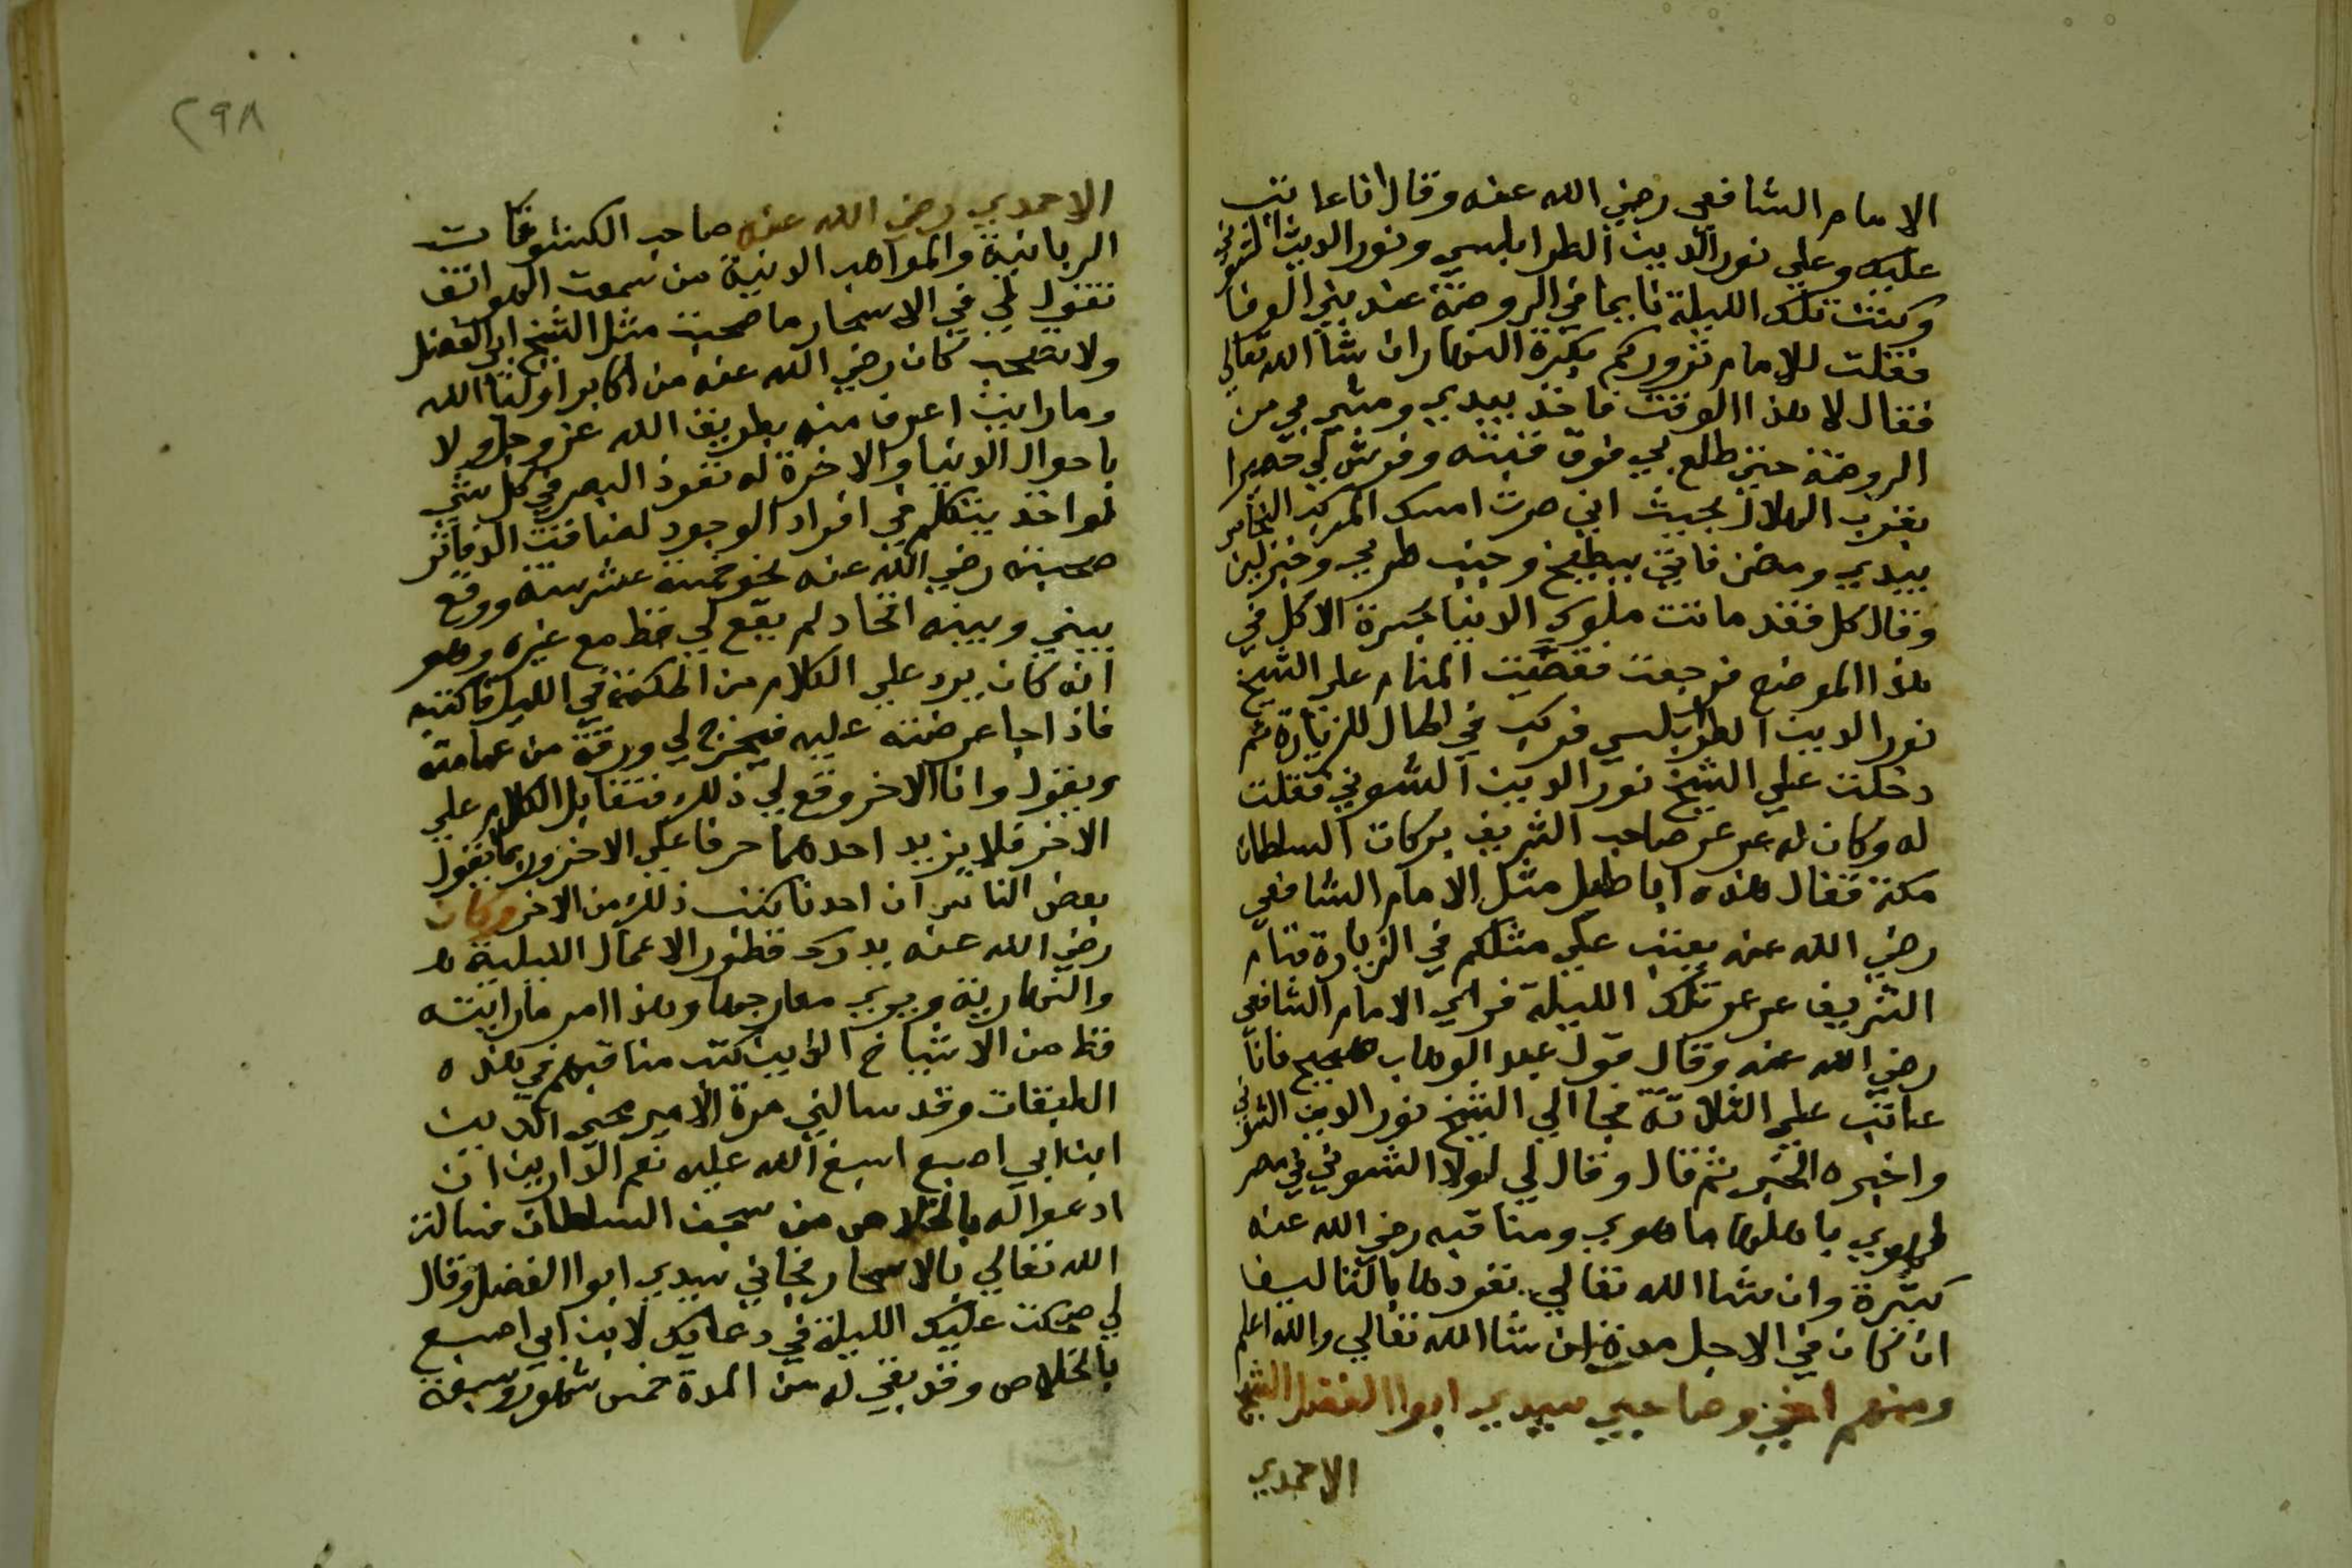 الامام الشافعي رضي الله عنه وقال انا عاتب
عليك وعلي نور الدين الطرابلسي ونور الدين الشوني
وكنت تلك الليلة نايما في الروضة عند بني الوفا
فقلت للامام نزوركم بكرة النهار ان شا الله تعالي
فقال لا هذا الوقت فاخذ بيدي ومشي بي من
الروضة حتي طلع بي فوق قبته وفرش لي حصيرا
بقرب الهلال بحيث اني صرت امسك المركب النحاس
بيدي ومضي فاتي ببطيخ وجبن طري وخبز لين
وقال كل فقد ماتت ملوك الدنيا بحسرة الاكل في
هذا الموضع فرجعت فقصيت المنام علي الشيخ
نور الدين الطرابلسي فركب في الحال للزيارة ثم
دخلت علي الشيخ نور الدين الشوني فقلت
له وكان له عرعر صاحب الشريف بركات السلطان
مكة فقال هذه اباطيل مثل الامام الشافعي
رضي الله عنه يعتب علي مثلكم في الزيارة فنام
الشريف عرعر تلك الليلة فراي الامام الشافعي
رضي الله عنه وقال قول عبد الوهاب صحيح فانا
عاتب علي الثلاثة فجا الي الشيخ نور الدين الشوني
واخبره الخبر ثم قال وقال لي لولا الشوني في مصر
لهوي باهلها ما هوي ومناقبه رضي الله عنه
كثيرة وان شا الله تعالي نفردها بالتاليف
ان كان في الاجل مدة ان شا الله تعالي والله اعلم
ومنهم اخي وصاحبي سيدي ابوا الفضل الشيخ
الاحمدي
٢٩٨
الاحمدي رضي الله عنه صاحب الكشوفات
الربانية والمواهب الدنية من سمعت الهواتف
تقول لي في الاسحار ما صحبت مثل الشيخ ابي الفضل
ولا تصحب كان رضي الله عنه من اكابر اوليا الله
وما رايت اعرف منه بطريق الله عز وجل ولا
باحوال الدنيا والاخرة له نفوذ البصر في كل شي
لو اخذ يتكلم في افراد الوجود لضاقت الدفاتر
صحبته رضي الله عنه نحو خمسة عشر سنة ووقع
بيني وبينه اتحاد لم يقع لي قط مع غيره وهو
انه كان يرد علي الكلام من الحكمة في الليل فاكتبه
فاذا جا عرضته عليه فيخرج لي ورقة من عمامته
ويقول وانا الاخر وقع لي ذلك فتقابل الكلام علي
الاخر فلا يزيد احدهما حرفا علي الاخر وربما يقول
بعض الناس ان احدنا كتب ذلك من الاخر وكان
رضي الله عنه يدرك تطور الاعمال الليلية
والنهارية ويري معارجها وهذا امر ما رايته
قط من الاشياخ الذين كتبت مناقبهم في هذه
الطبقات وقد سالني مرة الامير محي الدين
ابن ابي اصبع اسبغ الله عليه نعم الدارين ان
ادعوا له بالخلاص من سجن السلطان فسالت
الله تعالي بالاسحار فجاني سيدي ابوا الفضل وقال
لي ضحكت عليك الليلة في دعايك لابن ابي اصبع
بالخلاص وقد بقي له من المدة خمس شهور وسبعة